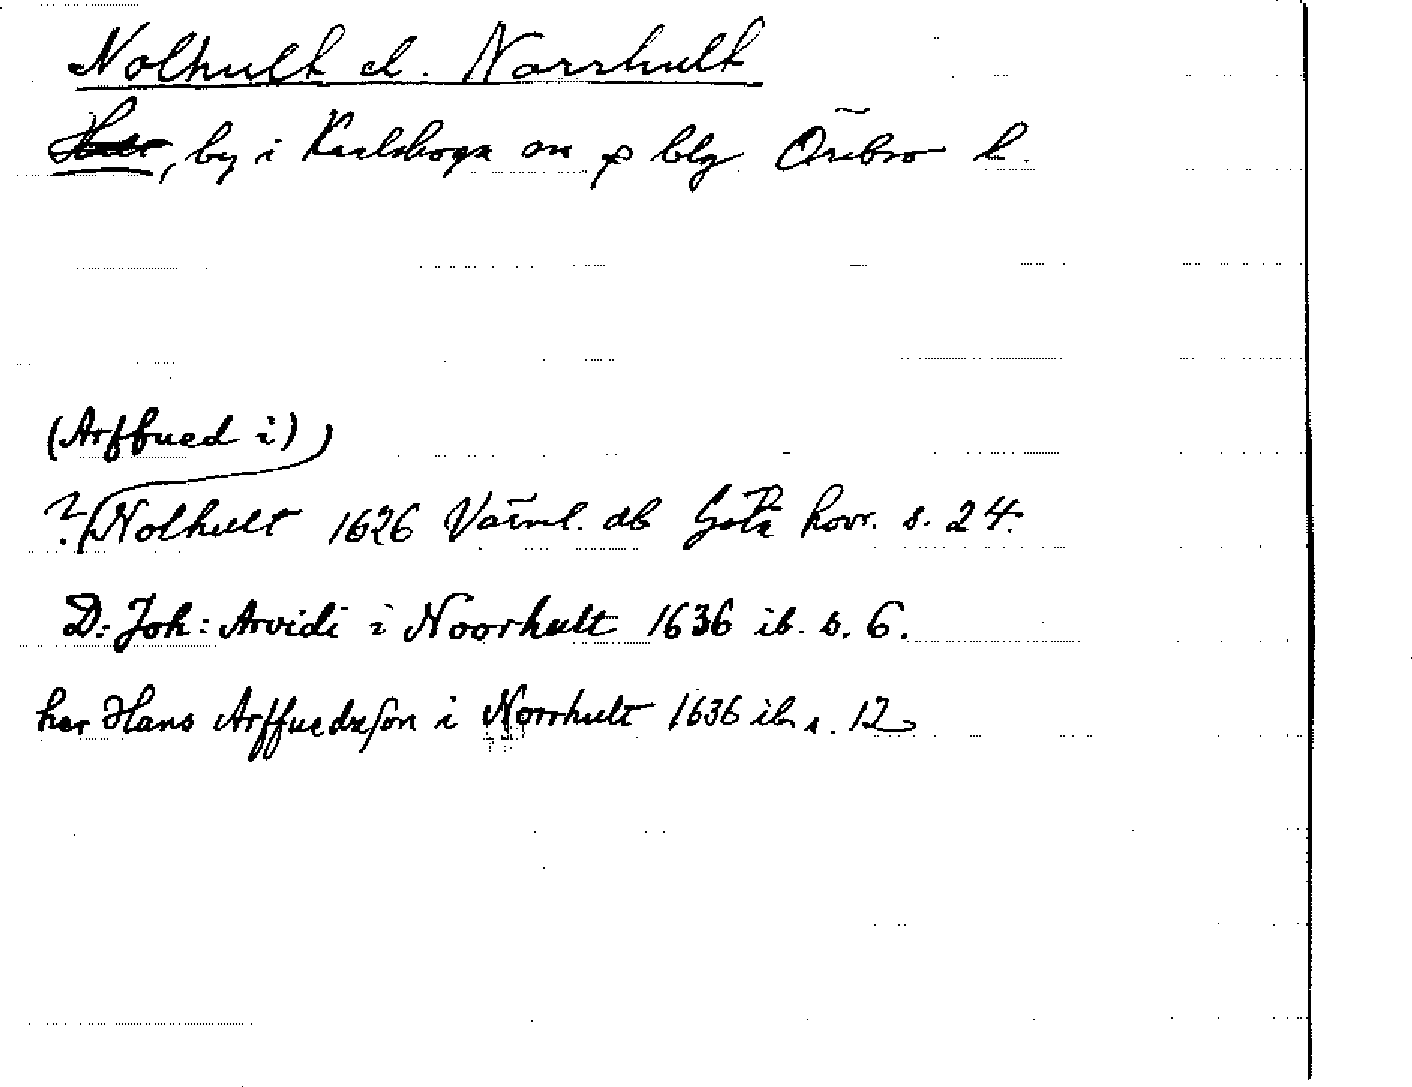 Nolhult el. Norrhult
, by i Karlskoga sn o blg Örebro l.
(Arffued i)
? Nolhult 1626 Värml. db Göta hovr. s. 24.
D: Joh: Arvidi i Noorhult 1636 ib. s. 6.
her Hans Arffuedzson i Norrhult 1636 ib. s. 12